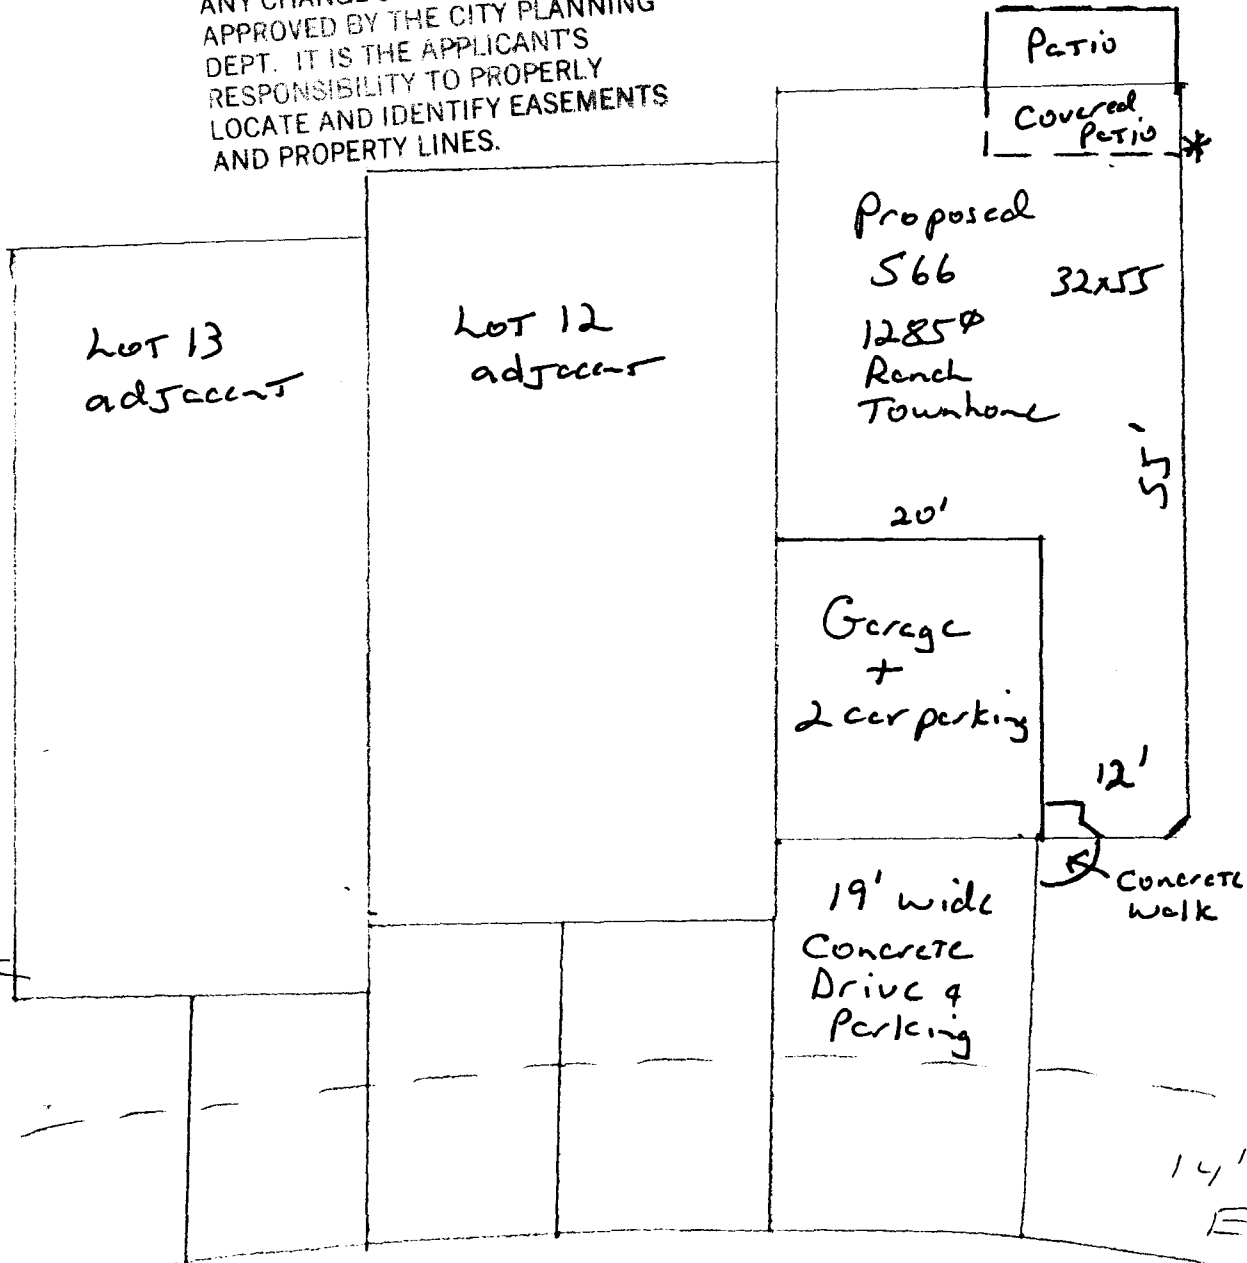 ANY CHANGE
APPROVED BY THE CITY PLANNING
DEPT. IT IS THE APPLICANT'S
RESPONSIBILITY TO PROPERLY
LOCATE AND IDENTIFY EASEMENTS
AND PROPERTY LINES.
Patio
Covered
Patio
*
Proposed
S66
32x55
1285⌀
Ranch
Townhome
Lot 13
adjacent
Lot 12
adjacent
55'
20'
Garage
+
2 car parking
12'
Concrete
Walk
19' wide
Concrete
Drive &
Parking
14'
E